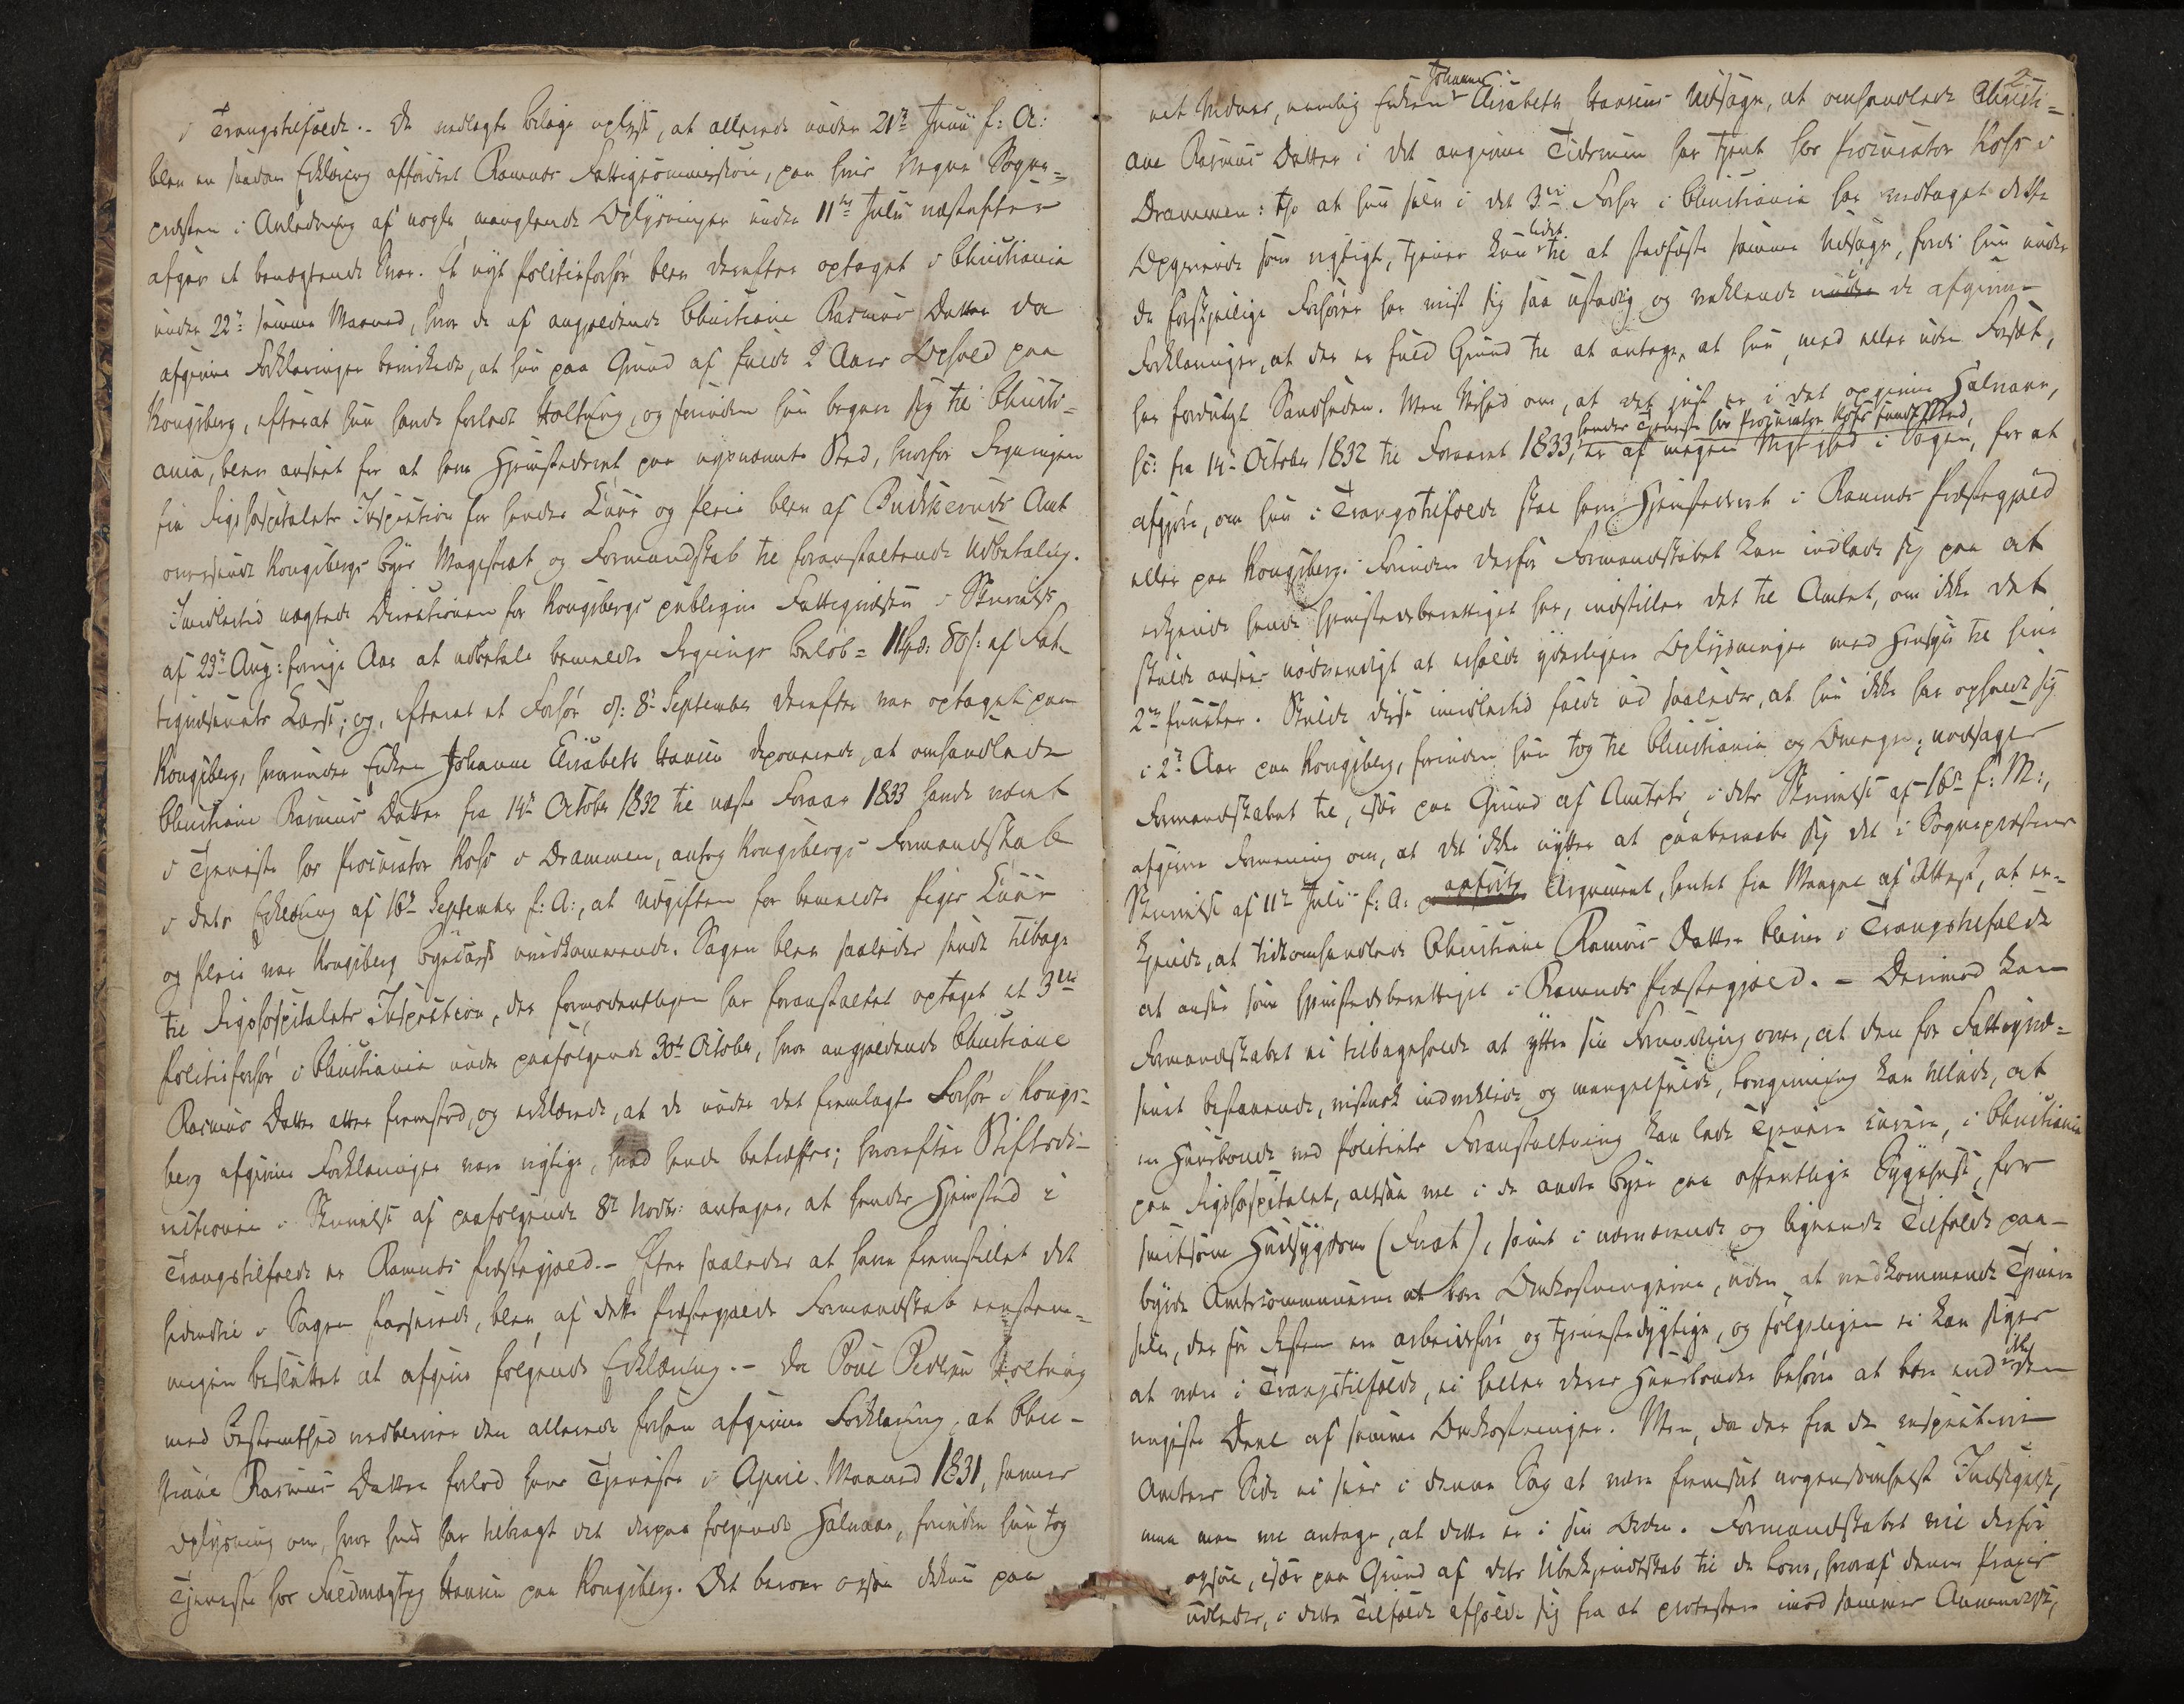 i Trangstilfælde. – De vedlagte Bilage oplyse, at allerede under 21de Junii f: A:
blev en saadan Erklæring affordret Ramnæs Fattigcommission, paa hvis Vegne Sogne-
præsten i Anledning af nogle manglende Oplysninger under 11te Julii næstefter
afgav et benægtende Svar. Et nyt Politieforhør blev derefter optaget i Christiania
under 22de samme Maaned, hvor de af angjældende Christiane Rasmus Datter da
afgivne Forklaringer bevirkede, at hun paa Grund af fulde 2 Aars Ophold paa
Kongsberg, efterat hun havde forladt Holtung, og forinden hun begav sig til Christi-
ania, blev anseet for at have Hjemstedsret paa nysnævnte Sted, hvorfor Regningen
fra Rigshospitalets Inspection for hendes Cuur og Pleie blev af Buskeruds Amt
oversendt Kongsbergs Byes Magistrat og Formandskab til foranstaltende Udbetaling.
Imidlertid nægtede Directionen for Kongsbergs publique Fattigvæsen i Skrivelse
af 23de Aug: forrige Aar at udbetale bemeldte Regnings Beløb = 11 Spd: 80 s: af Fat-
tigvæsenets Casse; og, efterat et Forhør d: 8de September derefter var optaget paa
Kongsberg, hvorunder Enken Johanne Elisabeth Hansen deponerede, at omhandlede
Christiane Rasmus Datter fra 14de October 1832 til næste Foraar 1833 havde været
i Tjeneste hos Procurator Koss i Drammen, antog Kongsbergs Formandskab
i dets Erklæring af 16de September f: A:, at Udgiften for bemeldte Piges Cuur
og Pleie var Kongsberg Byecasse uvedkommende. Sagen blev saaledes sendt tilbage
til Rigshospitalets Inspection, der formodentligen har foranstaltet optaget et 3die
Politieforhør i Christiania under paafølgende 30te October, hvor angjældende Christiane
Rasmus Datter atter fremstod, og erklærede, at de under det fremlagte Forhør i Kongs-
berg afgivne Forklaringer vare rigtige, hvad hende betræffer; hvorefter Stiftsdi-
rectionen i Skrivelse af paafølgende 8de Novbr: antager, at hendes Hjemsted i
Trangstilfælde er Ramnæs Præstegjæld. – Efter saaledes at have fremstillet det
hidindtil i Sagen passerede, blev af dette Præstegjælds Formandskab eenstem-
migen besluttet at afgive følgende Erklæring. – Da Poul Pedersen Holtung
med Bestemthed vedbliver den allerede forhen afgivne Forklaring, at Chri-
stiane Rasmus Datter forlod hans Tjeneste i April Maaned 1831, savnes
Oplysning om, hvor hun har tilbragt det derpaa følgende Halvaar, forinden hun tog
Tjeneste hos Fuldmægtig Hansen paa Kongsberg. Det beroer ogsaa ikkun paa
2
eet Vidnes, nemlig Enken Johanne Elisabeth Hansens Udsagn, at omhandlede Christi-
ane Rasmus Datter i det angivne Tidsrum har tjent hos Procurator Koss i
Drammen: thi at hun selv i det 3die Forhør i Christiania har vedtaget dette
Opgivende som rigtigt, tjener kun lidet til at stadfæste samme Udsagn, fordi hun under
de forskjellige Forhører har viist sig saa ustadig og vaklende under de afgivne
Forklaringer, at der er fuld Grund til at antage, at hun, med eller uden Forsæt,
har fordulgt Sandheden. Men Vished om, at det just er i det opgivne Halvaar,
sc: fra 14de October 1832 til Foraaret 1833, hendes Tjeneste hos Procurator Koss fandt Sted, er af megen Vigtighed i Sagen, for at
afgjøre, om hun i Trangstilfælde skal have Hjemstedsret i Ramnæs Præstegjæld
eller paa Kongsberg. Forinden derfor Formandskabet kan indlade sig paa at
erkjende hende hjemstedsberettiget her, indstiller det til Amtet, om ikke det
skulde ansees nødvendigt at erholde yderligere Oplysninger med Hensyn til hine
2de Puncter. Skulde disse imidlertid falde ud saaledes, at hun ikke har opholdt sig
i 2de Aar paa Kongsberg, forinden hun tog til Christiania og Omegn; nødsages
Formandskabet til, især paa Grund af Amtets, i dets Skrivelse af 16de f: M:,
afgivne Formening om, at det ikke nytter at paaberaabe sig det i Sognepræstens
Skrivelse af 11te Julii f: A: anførte Argument, hentet fra Mangel af Attest, at er-
kjende, at tidtomhandlede Christiane Rasmus Datter bliver i Trangstilfælde
at ansee som hjemstedsberettiget i Ramnæs Præstegjæld. – Derimod kan
Formandskabet ei tilbageholde at yttre sin Forundring over, at den for Fattigvæ-
senet bestaaende, vistnok indviklede og mangelfulde, Lovgivning kan tillade, at
en Huusbonde ved Politiets Foranstaltning kan lade Tjenere curere, i Christiania
paa Rigshospitalet, altsaa vel i de andre Byer paa offentlige Sygehuse, for
smitsom Hudsygdom (Fnat), samt i nærværende og lignende Tilfælde paa-
byrde Amtscommunerne at bære Omkostningerne, uden at vedkommende Tjenere
selv, der for Resten ere arbeidsføre og tjenestedygtige, og følgeligen ei kan siges
at være i Trangstilfælde, ei heller deres Huusbonder behøve at bære end ikke den
ringeste Deel af samme Omkostninger. Men, da der fra de respective
Amters Side ei sees i denne Sag at være fremsat nogensomhelst Indsigelse,
maa man vel antage, at dette er i sin Orden. Formandskabet vil derfor
ogsaa, især paa Grund af dets Ubekjendtskab til de Love, hvoraf denne Praxis
udledes, i dette Tilfælde afholde sig fra at protestere imod sammes Anvendelse,